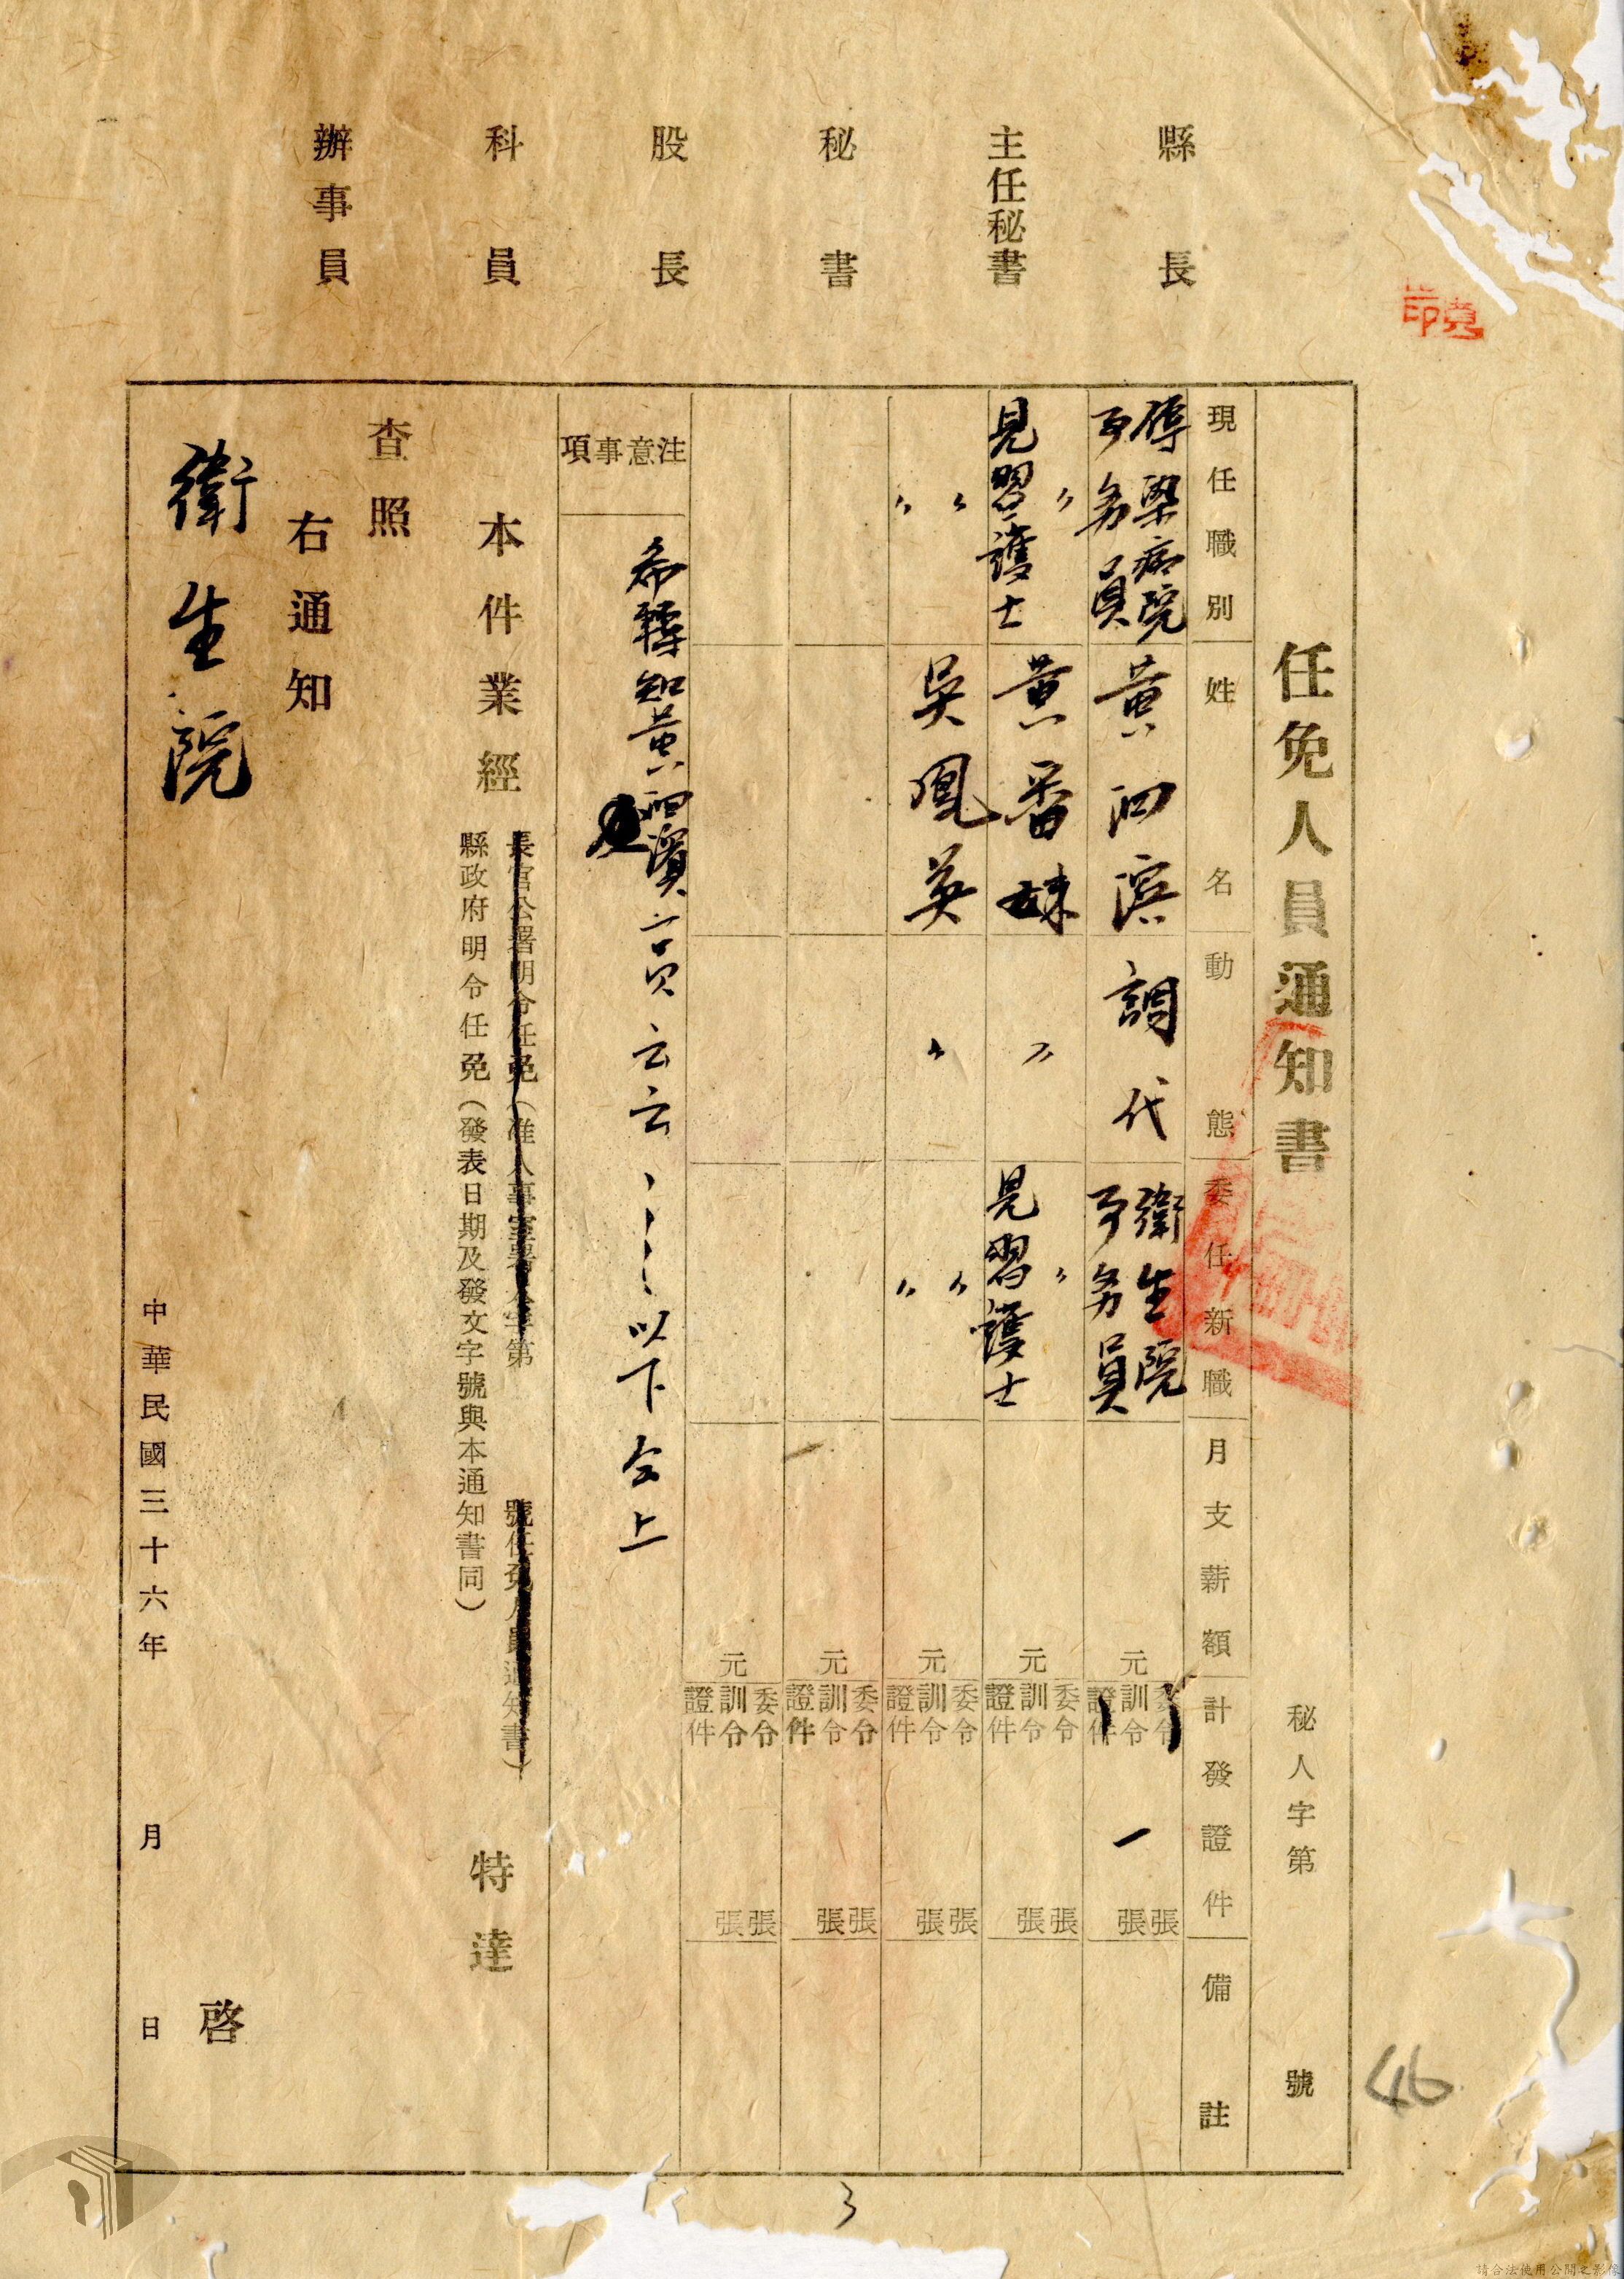 縣長
主任秘書
秘書
股長
科員
辦事員
任免人員通知書
秘人字第 號
現任職別 姓名 動態 委任新職 月支薪額 計發證件 備註
傳染病院事务員 黄四濱 調代 衛生院事务員 元 委令 訓令 證件 一 張 張
〃見習護士 黄番妹 〃 〃見習護士 元 委令 訓令 證件 張 張
〃〃 吳鳳英 〃 〃〃 元 委令 訓令 證件 張 張
元 委令 訓令 證件 張 張
元 委令 訓令 證件 張 張
注意事項
希轉知黄四濱 云云 以下仝上
本件業經
長官公署明令任免(准人事室署人字第 號任免人員通知書)
縣政府明令任免(發表日期及發文字號與本通知書同)
特達
查照
右通知
衛生院
啓
中華民國三十六年 月 日
46
3
請合法使用公開之影像